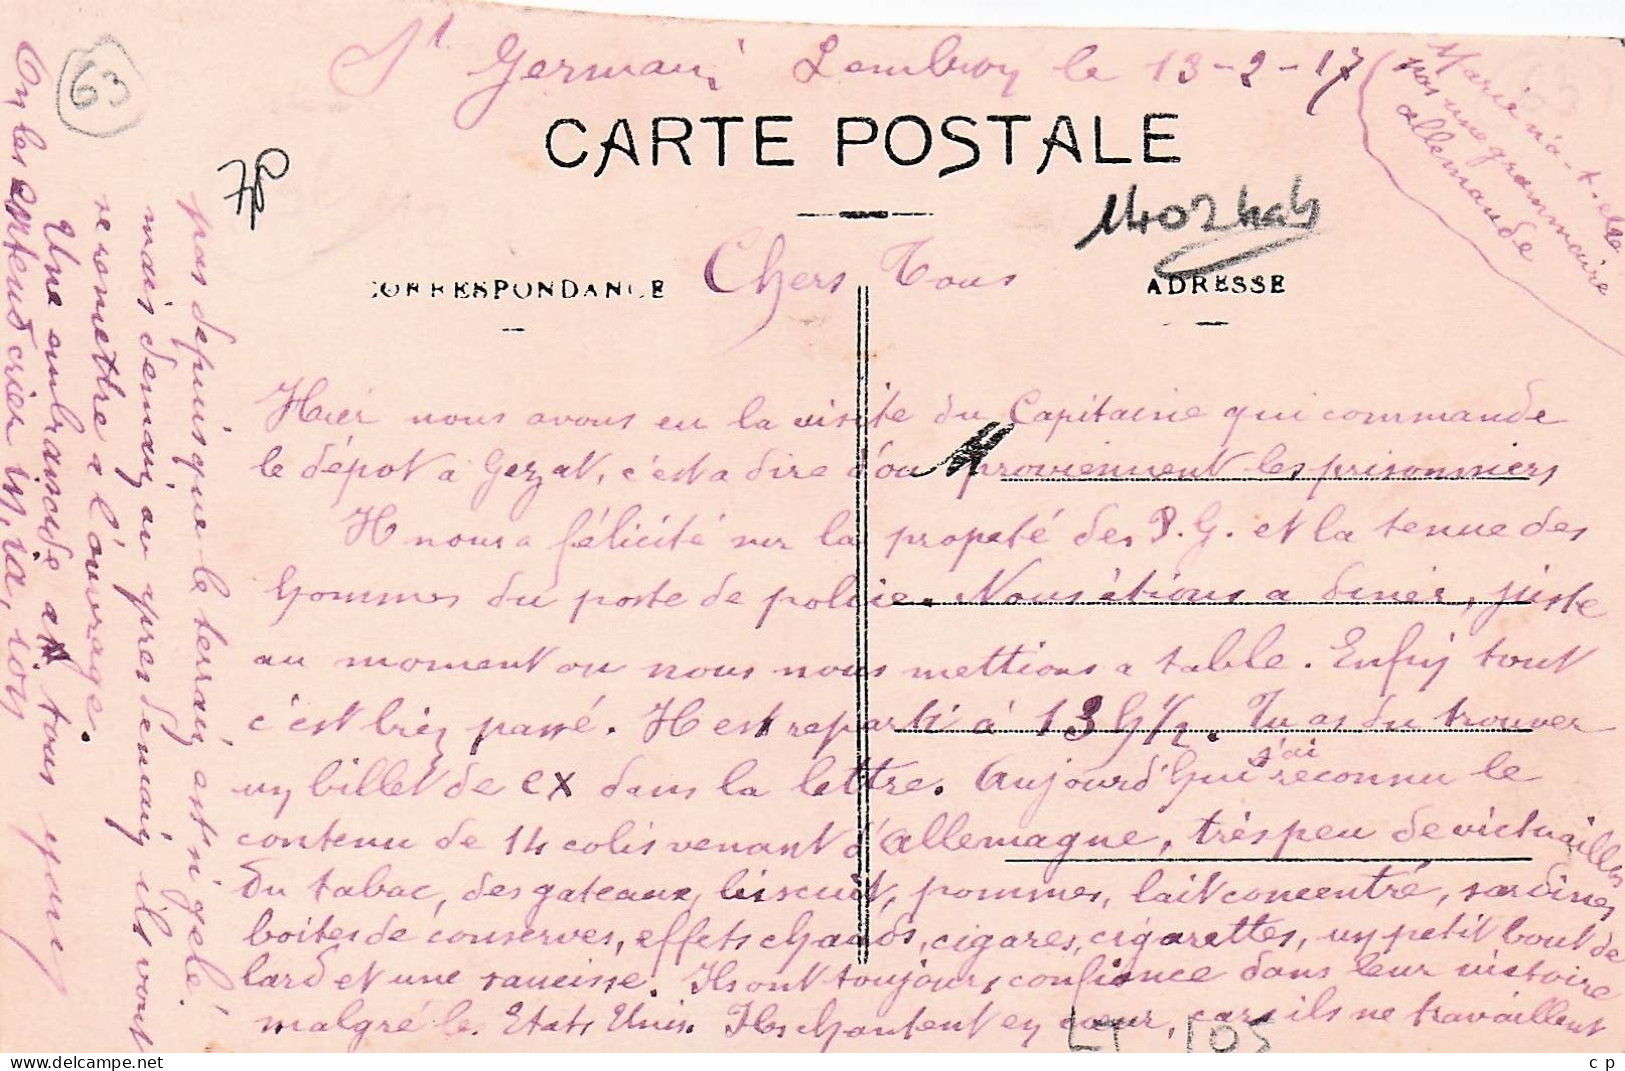 St Germain Lembron le 13-2-17
Marie n'a-t-elle
pas une grammaire
allemande
63
CARTE POSTALE
1402
CORRESPONDANCE
ADRESSE
Chers Tous
Hier nous avons eu la visite du Capitaine qui commande
le dépot a Gerzat, c'est a dire d'ou proviennent les prisonniers
Il nous a félicité sur la propeté des P.G. et la tenue des
hommes du poste de police. Nous étions a diner, juste
au moment ou nous nous mettions a table. Enfin tout
c'est bien passé. Il est reparti à 13 h 1/2. Tu as du trouver
un billet de cx dans la lettre. Aujourd'hui j'ai reconnu le
contenu de 14 colis venant d'allemagne, très peu de victuailles
du tabac, des gateaux, biscuit, pommes, lait concentré, sardines
boites de conserves, effets chauds, cigares, cigarettes, un petit bout de
lard et une saucisse. Ils ont toujours confiance dans leur victoire
malgré le. Etats Unis. Ils chantent en cœur, car ils ne travaillent
pas depuis que le terrain est si gelé.
mais demain ou apres demain ils vont
se remettre a l'ouvrage.
Une embrassade a tous
On les entend crier
LT 105
c p